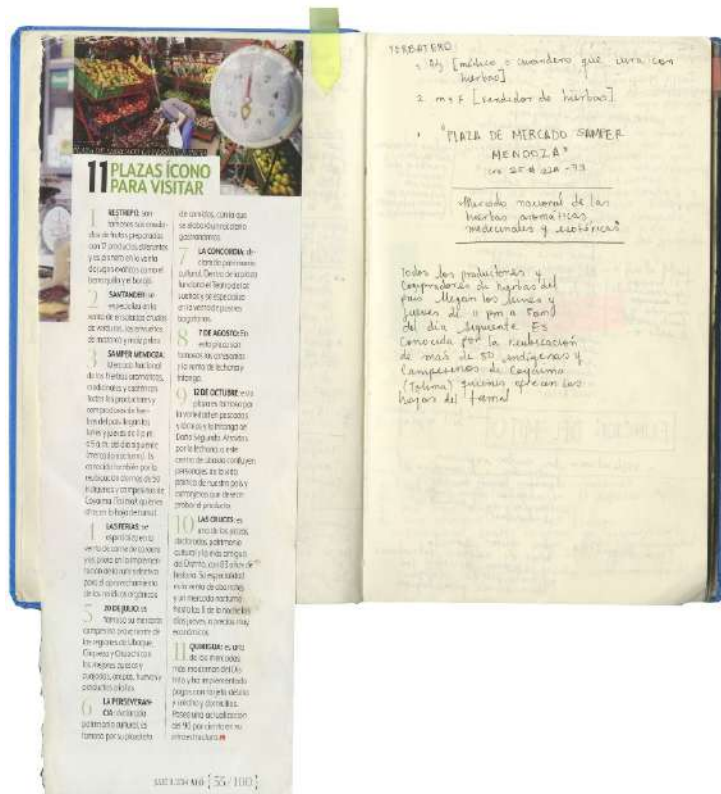 11 PLAZAS ÍCONO
PARA VISITAR
1 RESTREPO: son
famosos
de frutas preparadas
con 17 productos diferentes
y es pionero en la venta
2 SANTANDER: se
especializa en la
venta de ensaladas crudas
de verduras, los envueltos
de mazorca y maíz pelao
3 SAMPER MENDOZA:
Mercado Nacional
de las hierbas aromáticas,
medicinales y esotéricas
Todos los productores y
compradores de hier-
bas del país llegan los
lunes y jueves de 11 p.m.
a 5 a.m. del día siguiente
(mercado nocturno). Es
conocida también por la
reubicación de más de 50
indígenas y campesinos de
Coyaima (Tolima) quienes
ofrecen la hoja de tamal.
4 LAS FERIAS: se
especializa en la
venta de carne de cordero
y es piloto en la implemen-
tación de la ruta selectiva
para el aprovechamiento
de los residuos orgánicos
5 20 DE JULIO: es
famoso su mercado
campesino proveniente de
las regiones de Ubaque,
Chipaque y Choachí con
los mejores quesos y
cuajadas, arepas, huevos y
productos
6 LA PERSEVERAN-
CIA: declarada
patrimonio cultural, es
famosa por su plazoleta
de comidas, con la que
se elaboró un recetario
gastronómico.
7 LA CONCORDIA: de-
clarada patrimonio
cultural. Dentro de la plaza
funciona el Teatro de los
Sueños y se especializa
en la venta de quesos
bogotanos.
8 7 DE AGOSTO: En
esta plaza son
famosos los
y la venta de lechona y
fritanga.
9 12 DE OCTUBRE: esta
plaza es famosa por
la variedad en pescados
y lácteos y la fritanga de
Doña Segunda. Atraídos
por la lechona, a este
centro de abasto confluyen
personajes de la vida
política de nuestro país y
extranjeros que desean
probar el producto.
10 LAS CRUCES: es
una de las plazas
declaradas patrimonio
cultural y la más antigua
del Distrito, con 83 años de
historia. Su especialidad
es la venta de abarrotes
y un mercado nocturno
hasta las 11 de la noche los
días jueves, a precios muy
económicos.
11 QUIRIGUA: es una
de los mercados
más modernas del Dis-
trito y ha implementado
pagos con tarjeta débito
y crédito y domicilios.
Posee una actualización
del 90 por ciento en su
infraestructura.
[55/100]
YERBATERO
1. Adj [médico o curandero que cura con
hierbas]
2. m y f [vendedor de hierbas]
"PLAZA DE MERCADO SAMPER
MENDOZA"
cra 25 # 22A - 73
"Mercado nacional de las
hierbas aromáticas,
medicinales y esotéricas"
Todos los productores y
compradores de hierbas del
país llegan los lunes y
jueves de 11 pm a 5 am
del día siguiente Es
conocida por la reubicación
de más de 50 indígenas y
campesinos de Coyaima
(Tolima) quienes ofrecen las
hojas del tamal